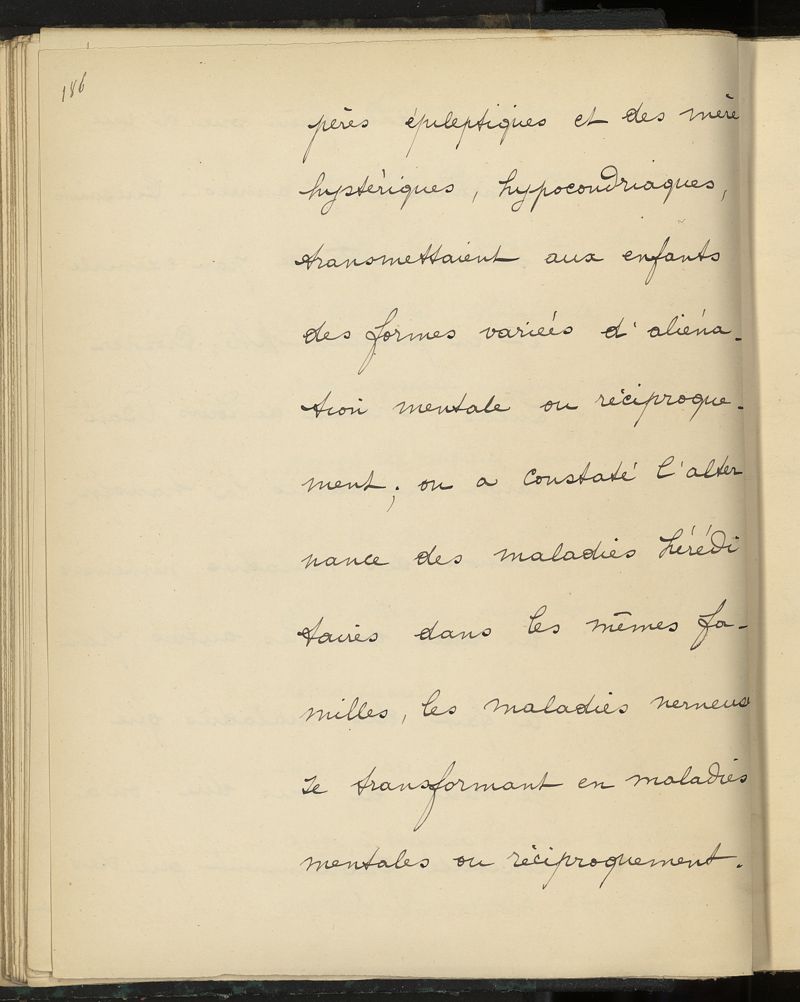 186
pères épileptiques et des mère
hystériques, hypocondriaques,
transmettaient aux enfants
des formes variées d'aliéna-
tion mentale ou réciproque-
ment; on a constaté l'alter
nance des maladies hérédi
taires dans les mêmes fa-
milles, les maladies nerveus
se transformant en maladies
mentales ou réciproquement.